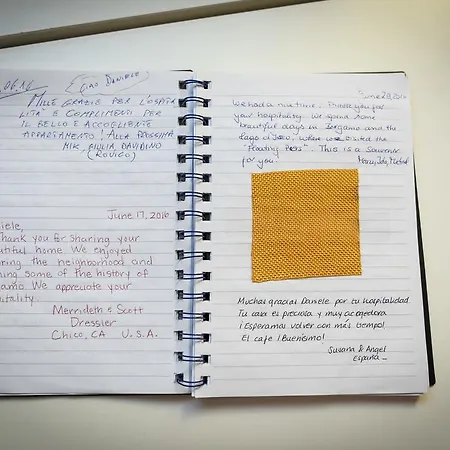 .06.16
(Ciao Daniele)
Mille grazie per l'ospita
lità e complimenti per
il bello e accogliente
appartamento! Alla prossima
Mik, Giulia, Davidino
(Rovigo)
June 17, 2016
iele,
hank you for sharing your
utiful home. We enjoyed
ring the neighborhood and
ning some of the history of
amo. We appreciate your
itality.
Merrideth & Scott
Dressler
Chico, CA U.S.A.
June 20, 2016
We had a nice time. Thank you for
your hospitality. We spend some
beautiful days in Bergamo and the
Lago d'Iseo, where we visited the
"Floating Piers". This is a Souvenir
for you!
Muchas gracias Daniele por tu hospitalidad.
Tu casa es preciosa y muy acogedora
¡Esperamos volver con más tiempo!
El café ¡Buenísimo!
Susana & Angel
España